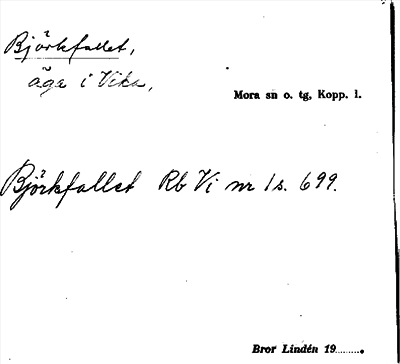 Björkfallet,
äga i Vika,
Mora sn o. tg, Kopp. l.
Björkfallet Rb Vi nr 1 s. 699.
Bror Lindén 19........